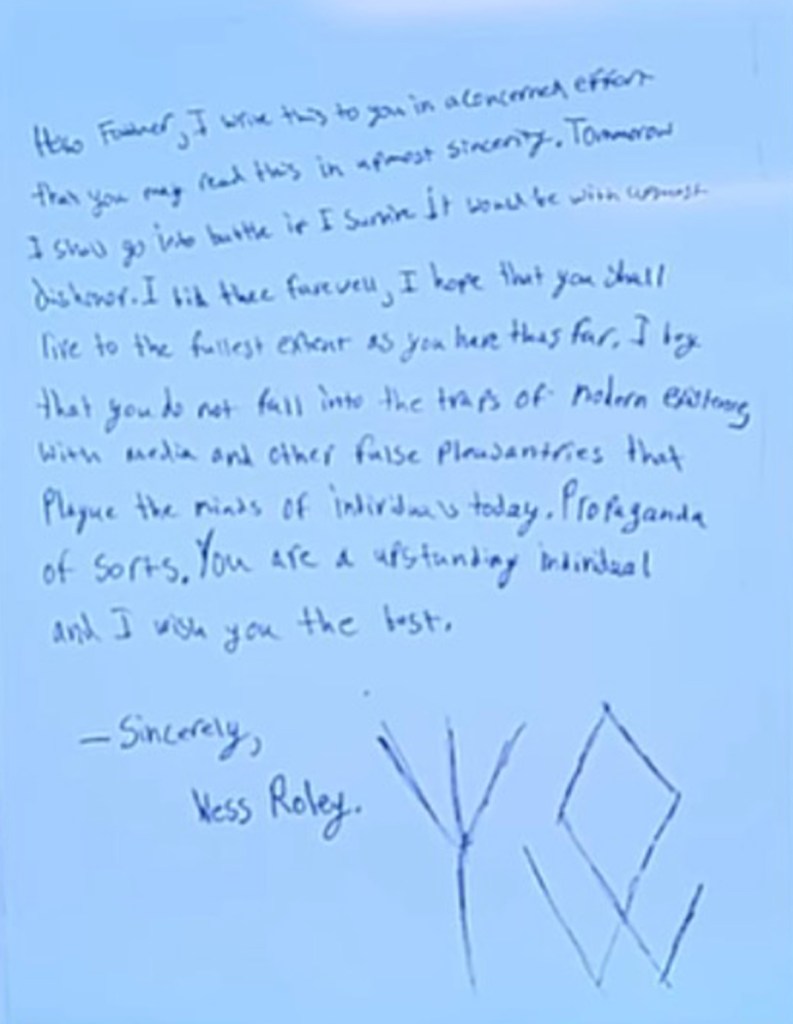 Hello Father, I write this to you in a concerned effort
that you may read this in upmost sincerity. Tommorow
I shall go into battle if I survive it would be with upmost
dishonor. I bid thee farewell, I hope that you shall
live to the fullest extent as you have thus far. I beg
that you do not fall into the traps of modern existence
with media and other false pleasantries that
Plague the minds of individuals today. Propaganda
of sorts. You are a upstanding individual
and I wish you the best.
– Sincerely,
Wess Roley.